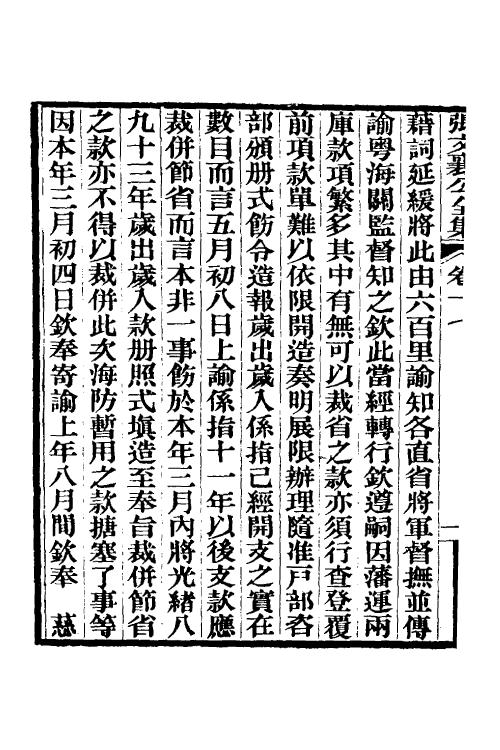 張文襄公全集 卷十八
藉詞延緩將此由六百里諭知各直省將軍督撫並傳
諭粵海關監督知之欽此當經轉行欽遵嗣因藩運兩
庫款項繁多其中有無可以裁省之款亦須行查登覆
前項款單難以依限開造奏明展限辦理隨准戸部咨
部頒册式飭令造報歲出歲入係指已經開支之實在
數目而言五月初八日上諭係指十一年以後支款應
裁併節省而言本非一事飭於本年三月內將光緒八
九十三年歲出歲入款册照式塡造至奉旨裁併節省
之款亦不得以裁併此次海防暫用之款搪塞了事等
因本年三月初四日欽奉寄諭上年八月間欽奉 慈